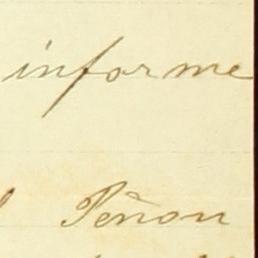 informe
Peñon